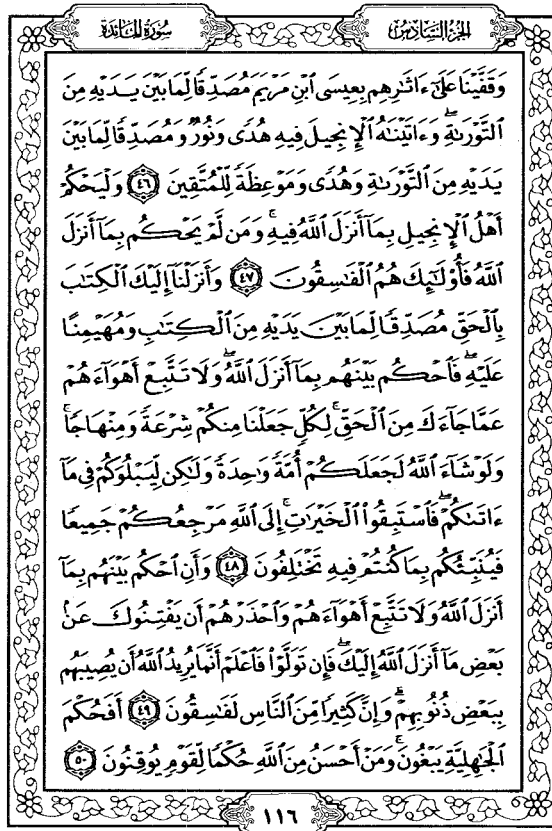 الجزء السادس
سورة المائدة
وَقَفَّيْنَا عَلَىٰٓ ءَاثَٰرِهِم بِعِيسَى ٱبْنِ مَرْيَمَ مُصَدِّقًا لِّمَا بَيْنَ يَدَيْهِ مِنَ
ٱلتَّوْرَىٰةِ ۖ وَءَاتَيْنَٰهُ ٱلْإِنجِيلَ فِيهِ هُدًى وَنُورٌ وَمُصَدِّقًا لِّمَا بَيْنَ
يَدَيْهِ مِنَ ٱلتَّوْرَىٰةِ وَهُدًى وَمَوْعِظَةً لِّلْمُتَّقِينَ ٤٦ وَلْيَحْكُمْ
أَهْلُ ٱلْإِنجِيلِ بِمَآ أَنزَلَ ٱللَّهُ فِيهِ ۚ وَمَن لَّمْ يَحْكُم بِمَآ أَنزَلَ
ٱللَّهُ فَأُو۟لَٰٓئِكَ هُمُ ٱلْفَٰسِقُونَ ٤٧ وَأَنزَلْنَآ إِلَيْكَ ٱلْكِتَٰبَ
بِٱلْحَقِّ مُصَدِّقًا لِّمَا بَيْنَ يَدَيْهِ مِنَ ٱلْكِتَٰبِ وَمُهَيْمِنًا
عَلَيْهِ ۖ فَٱحْكُم بَيْنَهُم بِمَآ أَنزَلَ ٱللَّهُ ۖ وَلَا تَتَّبِعْ أَهْوَآءَهُمْ
عَمَّا جَآءَكَ مِنَ ٱلْحَقِّ ۚ لِكُلٍّ جَعَلْنَا مِنكُمْ شِرْعَةً وَمِنْهَاجًا ۚ
وَلَوْ شَآءَ ٱللَّهُ لَجَعَلَكُمْ أُمَّةً وَٰحِدَةً وَلَٰكِن لِّيَبْلُوَكُمْ فِى مَآ
ءَاتَىٰكُمْ ۖ فَٱسْتَبِقُوا۟ ٱلْخَيْرَٰتِ ۚ إِلَى ٱللَّهِ مَرْجِعُكُمْ جَمِيعًا
فَيُنَبِّئُكُم بِمَا كُنتُمْ فِيهِ تَخْتَلِفُونَ ٤٨ وَأَنِ ٱحْكُم بَيْنَهُم بِمَآ
أَنزَلَ ٱللَّهُ وَلَا تَتَّبِعْ أَهْوَآءَهُمْ وَٱحْذَرْهُمْ أَن يَفْتِنُوكَ عَنۢ
بَعْضِ مَآ أَنزَلَ ٱللَّهُ إِلَيْكَ ۖ فَإِن تَوَلَّوْا۟ فَٱعْلَمْ أَنَّمَا يُرِيدُ ٱللَّهُ أَن يُصِيبَهُم
بِبَعْضِ ذُنُوبِهِمْ ۗ وَإِنَّ كَثِيرًا مِّنَ ٱلنَّاسِ لَفَٰسِقُونَ ٤٩ أَفَحُكْمَ
ٱلْجَٰهِلِيَّةِ يَبْغُونَ ۚ وَمَنْ أَحْسَنُ مِنَ ٱللَّهِ حُكْمًا لِّقَوْمٍ يُوقِنُونَ ٥٠
١١٦